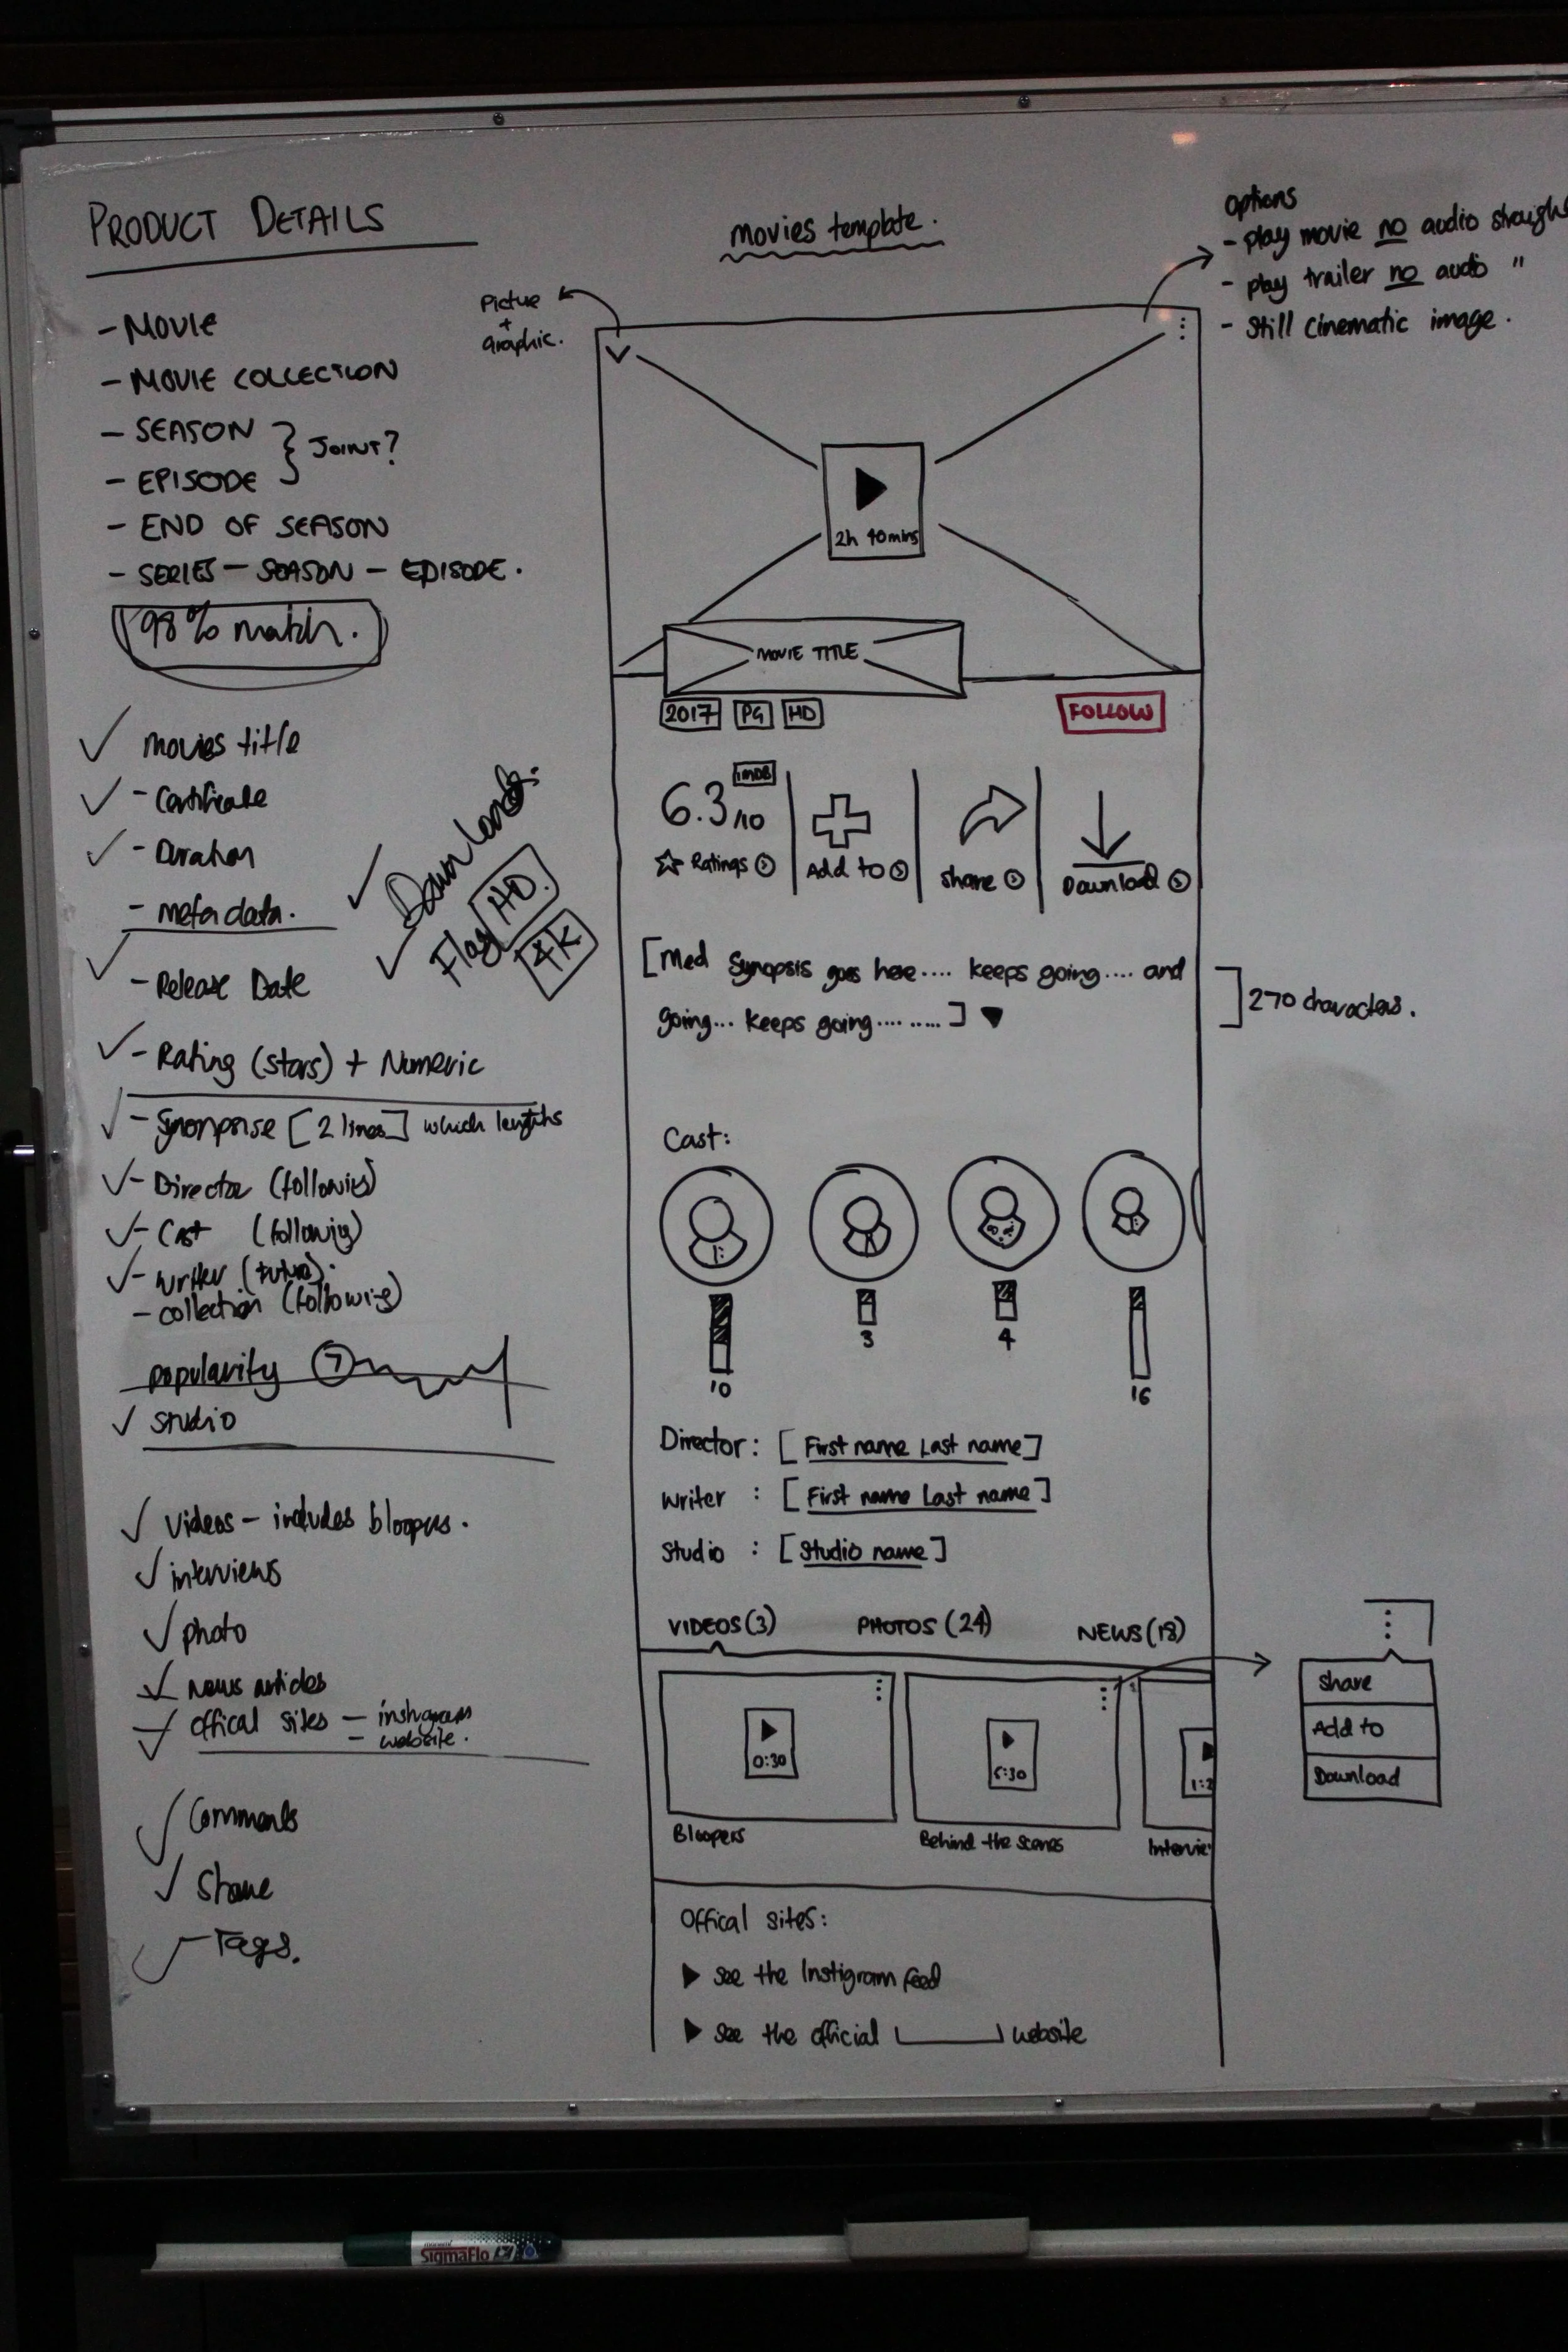 PRODUCT DETAILS
- MOVIE
- MOVIE COLLECTION
- SEASON
- EPISODE
} JOINT?
- END OF SEASON
- SERIES - SEASON - EPISODE.
98% match.
✓ movies title
✓ - Certificate
✓ - Duration
- metadata.
✓ - Release Date
✓ - Rating (stars) + Numeric
✓ - Synonprise [2 lines] which lengths
✓ - Director (following)
✓ - Cast (following)
✓ - writer
- collection (following)
popularity 7
✓ studio
✓ Videos - includes bloopers.
✓ interviews
✓ photo
✓ News articles
✓ offical sites - instagram
- website.
✓ Comments
✓ Share
✓ - Tags.
✓ Download
✓ Flag HD.
4K
movies template.
Picture
+
graphic.
2h 40mins
MOVIE TITLE
2017 PG HD
FOLLOW
6.3/10 IMDB
Ratings
Add to
share
Download
[Med Synopsis goes here.... keeps going.... and
going... keeps going.... .....]
Cast:
10
3
4
16
Director: [First name Last name]
Writer : [First name Last name]
Studio : [Studio name]
VIDEOS (3) PHOTOS (24) NEWS (18)
0:30
Bloopers
Behind the scenes
Offical sites:
▶ See the Instigram feed
▶ See the official website
Options
- play movie no audio
- play trailer no audio "
- Still cinematic image.
270 characters.
Share
Add to
Download
SigmaFlo